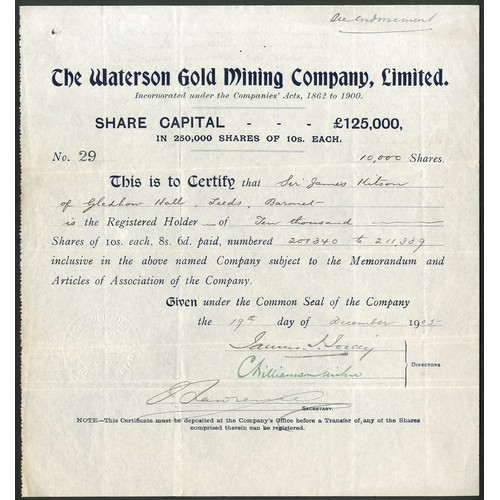 See endorsement
The Waterson Gold Mining Company, Limited.
Incorporated under the Companies' Acts, 1862 to 1900.
SHARE CAPITAL - - - £125,000,
IN 250,000 SHARES OF 10s. EACH.
No. 29 10,000 Shares.
This is to Certify that Sir James Kitson
of Gledhow Hall, Leeds, Baronet
is the Registered Holder of Ten thousand
Shares of 10s. each, 8s. 6d. paid, numbered 201340 to 211339
inclusive in the above named Company subject to the Memorandum and
Articles of Association of the Company.
Given under the Common Seal of the Company
the 19th day of December 1905
James J. Joicey
C Williamson Milne
DIRECTORS.
Lawrence
SECRETARY.
NOTE—This Certificate must be deposited at the Company's Office before a Transfer of any of the Shares
comprised therein can be registered.